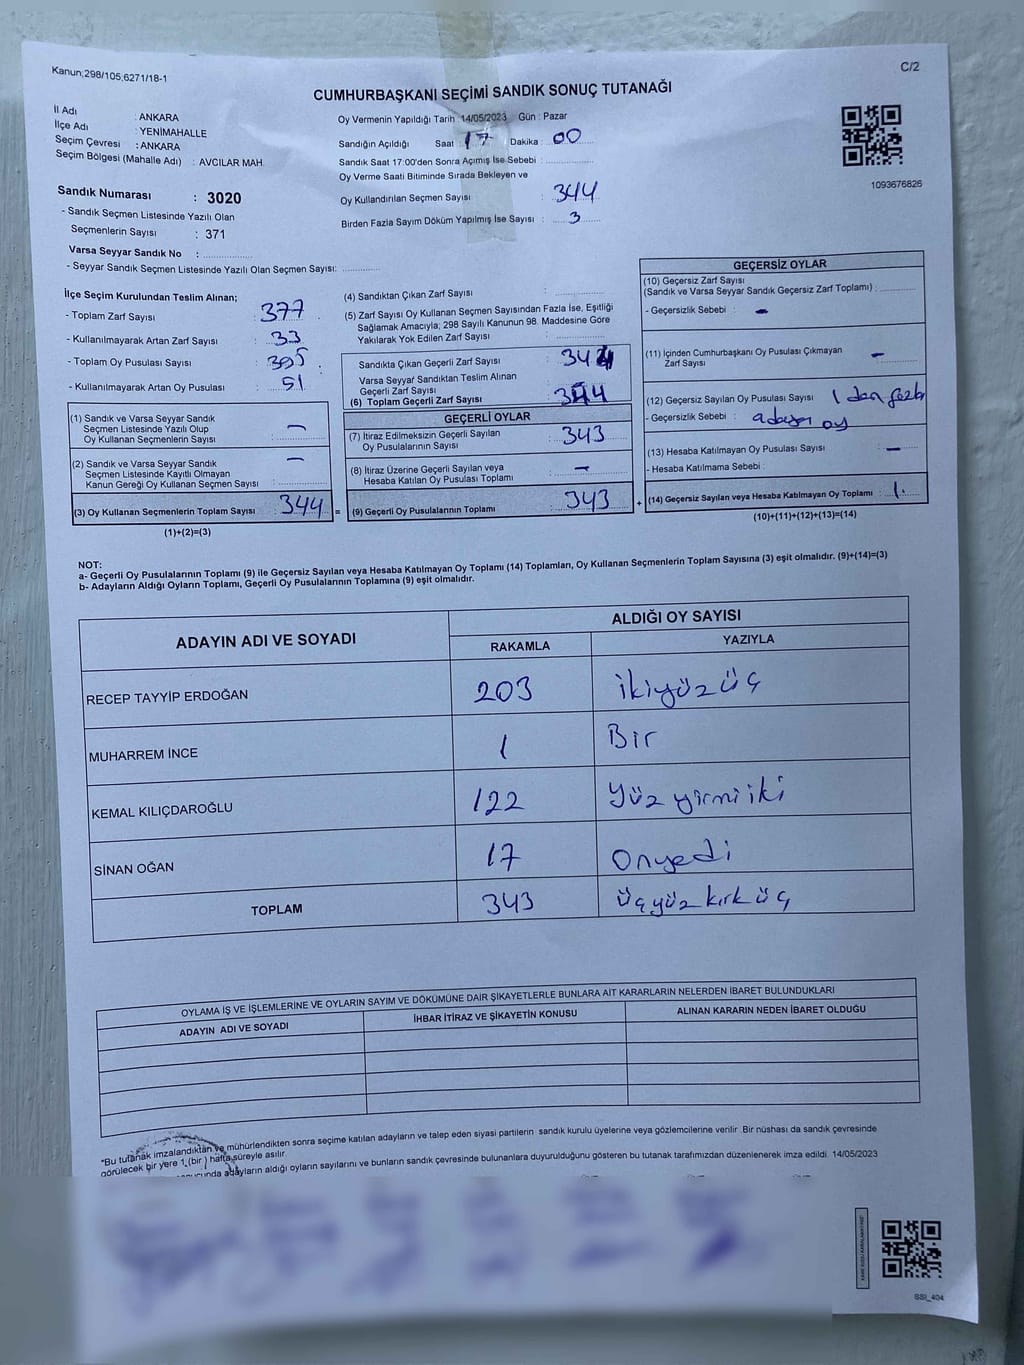 Kanun;298/105,6271/18-1
C/2
CUMHURBAŞKANI SEÇİMİ SANDIK SONUÇ TUTANAĞI
İl Adı : ANKARA
İlçe Adı : YENİMAHALLE
Seçim Çevresi : ANKARA
Seçim Bölgesi (Mahalle Adı) : AVCILAR MAH.
Sandık Numarası : 3020
- Sandık Seçmen Listesinde Yazılı Olan
Seçmenlerin Sayısı : 371
Varsa Seyyar Sandık No :
- Seyyar Sandık Seçmen Listesinde Yazılı Olan Seçmen Sayısı:
Oy Vermenin Yapıldığı Tarih : 14/05/2023 Gün : Pazar
Sandığın Açıldığı Saat : 17 Dakika : 00
Sandık Saat 17:00'den Sonra Açımış İse Sebebi :
Oy Verme Saati Bitiminde Sırada Bekleyen ve
Oy Kullandırılan Seçmen Sayısı : 344
Birden Fazla Sayım Döküm Yapılmış İse Sayısı : 3
1093676826
İlçe Seçim Kurulundan Teslim Alınan;
- Toplam Zarf Sayısı : 377
- Kullanılmayarak Artan Zarf Sayısı : 33
- Toplam Oy Pusulası Sayısı : 395
- Kullanılmayarak Artan Oy Pusulası : 51
(1) Sandık ve Varsa Seyyar Sandık
Seçmen Listesinde Yazılı Olup
Oy Kullanan Seçmenlerin Sayısı : —
(2) Sandık ve Varsa Seyyar Sandık
Seçmen Listesinde Kayıtlı Olmayan
Kanun Gereği Oy Kullanan Seçmen Sayısı : —
(3) Oy Kullanan Seçmenlerin Toplam Sayısı : 344 =
(1)+(2)=(3)
(4) Sandıktan Çıkan Zarf Sayısı :
(5) Zarf Sayısı Oy Kullanan Seçmen Sayısından Fazla İse, Eşitliği
Sağlamak Amacıyla; 298 Sayılı Kanunun 98. Maddesine Göre
Yakılarak Yok Edilen Zarf Sayısı :
Sandıkta Çıkan Geçerli Zarf Sayısı : 344
Varsa Seyyar Sandıktan Teslim Alınan
Geçerli Zarf Sayısı :
(6) Toplam Geçerli Zarf Sayısı : 344
GEÇERLİ OYLAR
(7) İtiraz Edilmeksizin Geçerli Sayılan
Oy Pusulalarının Sayısı : 343
(8) İtiraz Üzerine Geçerli Sayılan veya
Hesaba Katılan Oy Pusulası Toplamı : —
(9) Geçerli Oy Pusulalarının Toplamı : 343 +
GEÇERSİZ OYLAR
(10) Geçersiz Zarf Sayısı
(Sandık ve Varsa Seyyar Sandık Geçersiz Zarf Toplamı) :
- Geçersizlik Sebebi : —
(11) İçinden Cumhurbaşkanı Oy Pusulası Çıkmayan
Zarf Sayısı : —
(12) Geçersiz Sayılan Oy Pusulası Sayısı : 1 den fazla
- Geçersizlik Sebebi : adaya oy
(13) Hesaba Katılmayan Oy Pusulası Sayısı : —
- Hesaba Katılmama Sebebi :
(14) Geçersiz Sayılan veya Hesaba Katılmayan Oy Toplamı : 1.
(10)+(11)+(12)+(13)=(14)
NOT:
a- Geçerli Oy Pusulalarının Toplamı (9) ile Geçersiz Sayılan veya Hesaba Katılmayan Oy Toplamı (14) Toplamları, Oy Kullanan Seçmenlerin Toplam Sayısına (3) eşit olmalıdır. (9)+(14)=(3)
b- Adayların Aldığı Oyların Toplamı, Geçerli Oy Pusulalarının Toplamına (9) eşit olmalıdır.
ADAYIN ADI VE SOYADI
ALDIĞI OY SAYISI
RAKAMLA YAZIYLA
RECEP TAYYİP ERDOĞAN 203 ikiyüzüç
MUHARREM İNCE 1 Bir
KEMAL KILIÇDAROĞLU 122 Yüz yirmi iki
SİNAN OĞAN 17 Onyedi
TOPLAM 343 üçyüz kırk üç
OYLAMA İŞ VE İŞLEMLERİNE VE OYLARIN SAYIM VE DÖKÜMÜNE DAİR ŞİKAYETLERLE BUNLARA AİT KARARLARIN NELERDEN İBARET BULUNDUKLARI
ADAYIN ADI VE SOYADI İHBAR İTİRAZ VE ŞİKAYETİN KONUSU ALINAN KARARIN NEDEN İBARET OLDUĞU
*Bu tutanak imzalandıktan ve mühürlendikten sonra seçime katılan adayların ve talep eden siyasi partilerin sandık kurulu üyelerine veya gözlemcilerine verilir. Bir nüshası da sandık çevresinde
görülecek bir yere 1 (bir) hafta süreyle asılır.
adayların aldığı oyların sayılarını ve bunların sandık çevresinde bulunanlara duyurulduğunu gösteren bu tutanak tarafımızdan düzenlenerek imza edildi. 14/05/2023
SSI_404